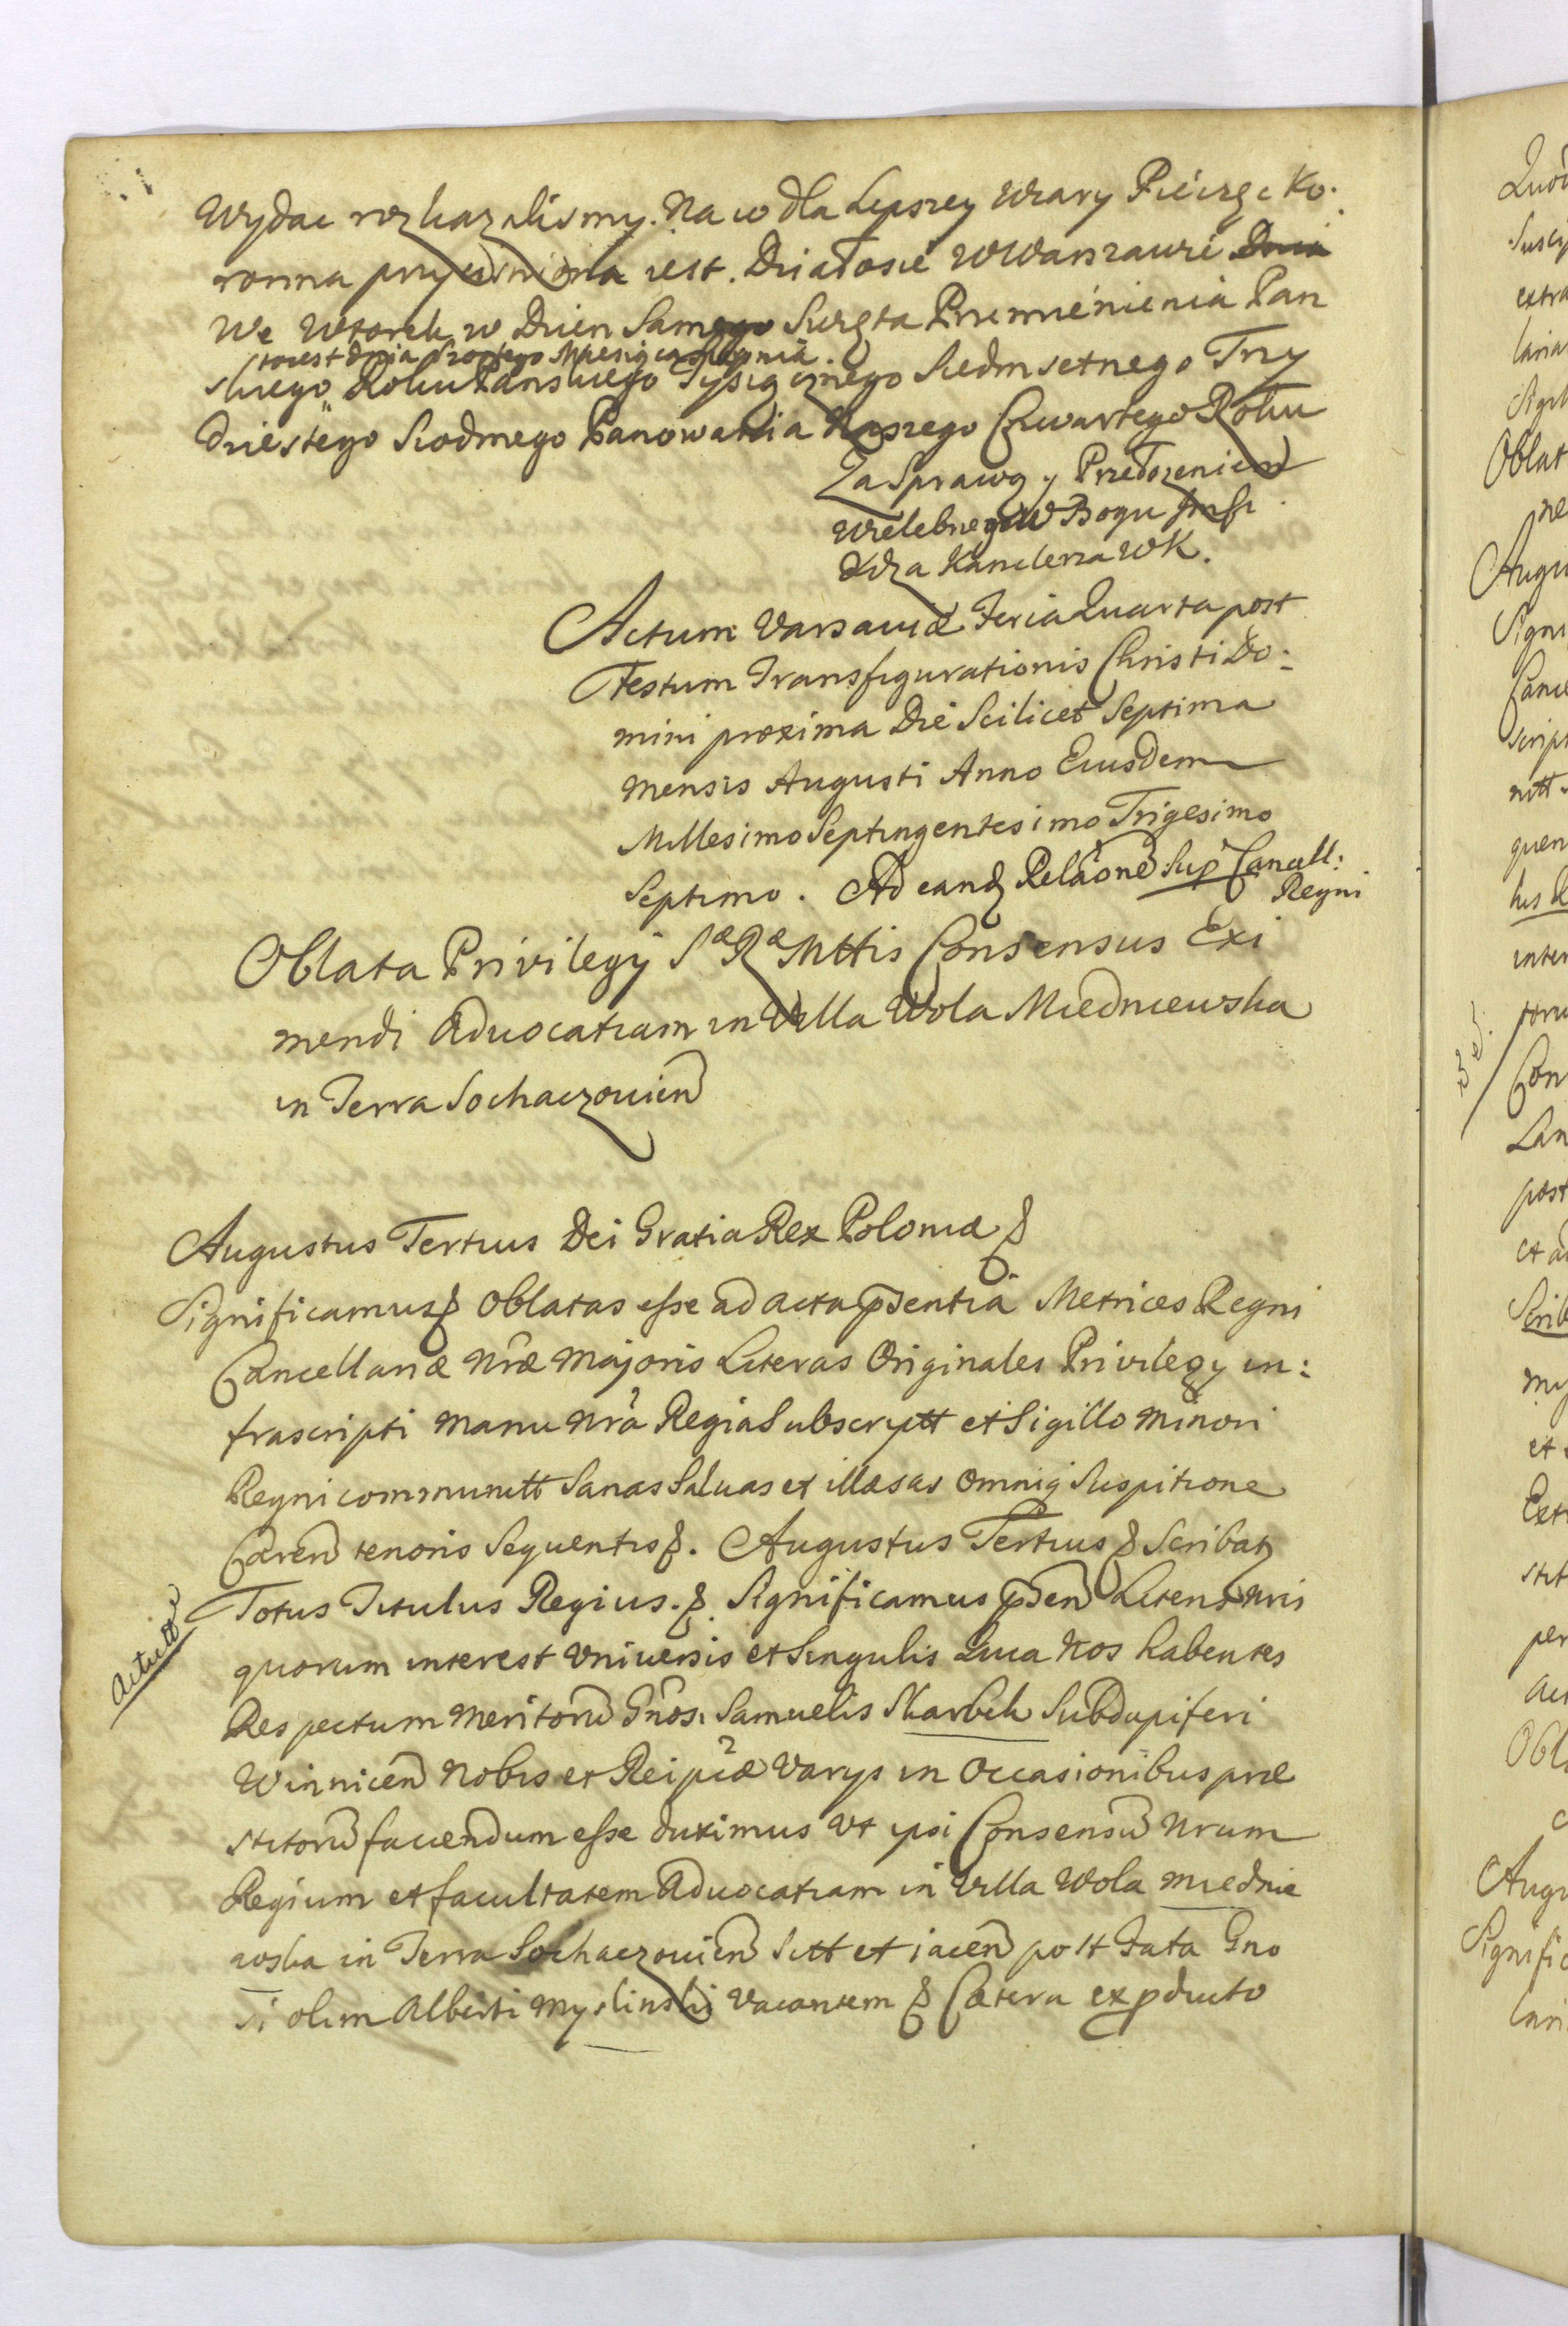 Wydac rozkazalismy. Na co dla Lepszey Wiary Pieczęc Ko:
ronna przycisniona iest. Działosie WWarszawie Dnia
We Wtorek w Dzien Samego Swięta Przemienienia Pan
/toiest dnia Szostego Miesiąca Sierpnia.
skiego Roku Panskiego Tysiącznego Siedmsetnego Trzy
dziestego Siodmego Panowania Naszego Czwartego Roku
Za Sprawą y Przełozeniem
Wielebnego W Bogu
Xdza Kanclerza WK.
Actum Varsaviæ Feria Quarta post
Festum Transfigurationis Christi Do:
mini proxima Die Scilicet Septima
Mensis Augusti Anno Eiusdem
Millesimo Septingentesimo Trigesimo
Septimo. Ad eand Relãone Sup Cancell:
Regni
Oblata Privilegÿ Sæ Ræ Mttis Consensus Exi
mendi Advocatiam in Villa Wola Miedniewska
in Terra Sochaczouien
Augustus Tertius Dei Gratia Rex Poloniæ &
Significamus & Oblatas esse ad acta psentia Metrices Regni
Cancellariæ Nræ Majoris Literas Originales Privilegÿ in:
frascripti Manu Nrã Regia Subscriptt et Sigillo Minori
Regni communitt Sanas Saluas et illæsas Omniq Suspitione
Caren tenoris Sequentis &. Augustus Tertius & Scribat
Totus Titulus Regius. & Significamus psen Literis Nris
quorum interest Vniuersis et Singulis Quia Nos habentes
actutt
Respectum Meritoru Gnosi Samuelis Skarbek Subdapiferi
Winnicen Nobis et Reipcæ Varys in Occasionibus præ
stitoru faciendum esse duximus Vt ipsi Consensu Nrum
Regium et facultatem Advocatiam in Villa Wola Miednie
wska in Terra Sochaczouien Sitt et iacen post Fata Gno
si olim Alberti Myslinski Vacantem & Cætera ex pducto